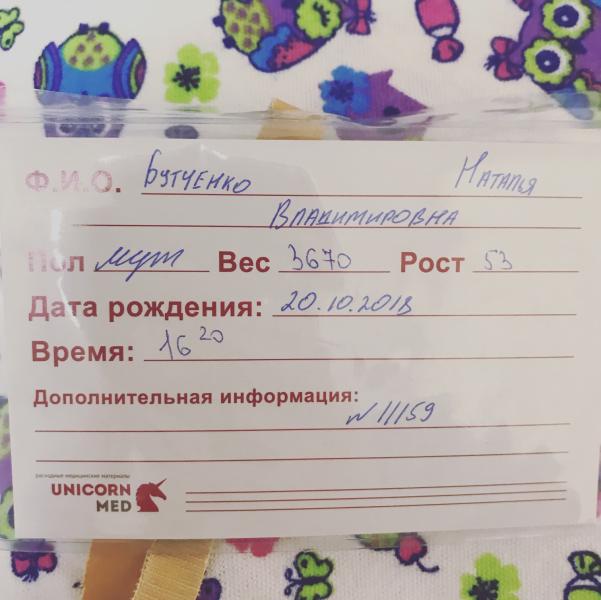 Ф.И.О. Бутченко Наталья
Владимировна
Пол муж Вес 3670 Рост 53
Дата рождения: 20.10.2018
Время: 16 20
Дополнительная информация:
N 11159
расходные медицинские материалы
UNICORN
MED